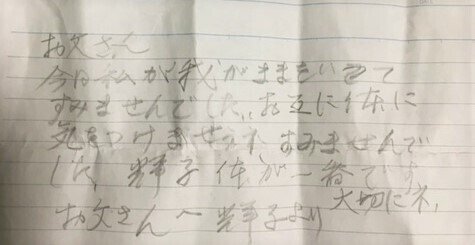 お父さん
今日私が我がままをいって
すみませんでした、お互に体に
気をつけませう、すみませんで
した、輝子体が一番です
大切にネ、
お父さんへ 輝子より